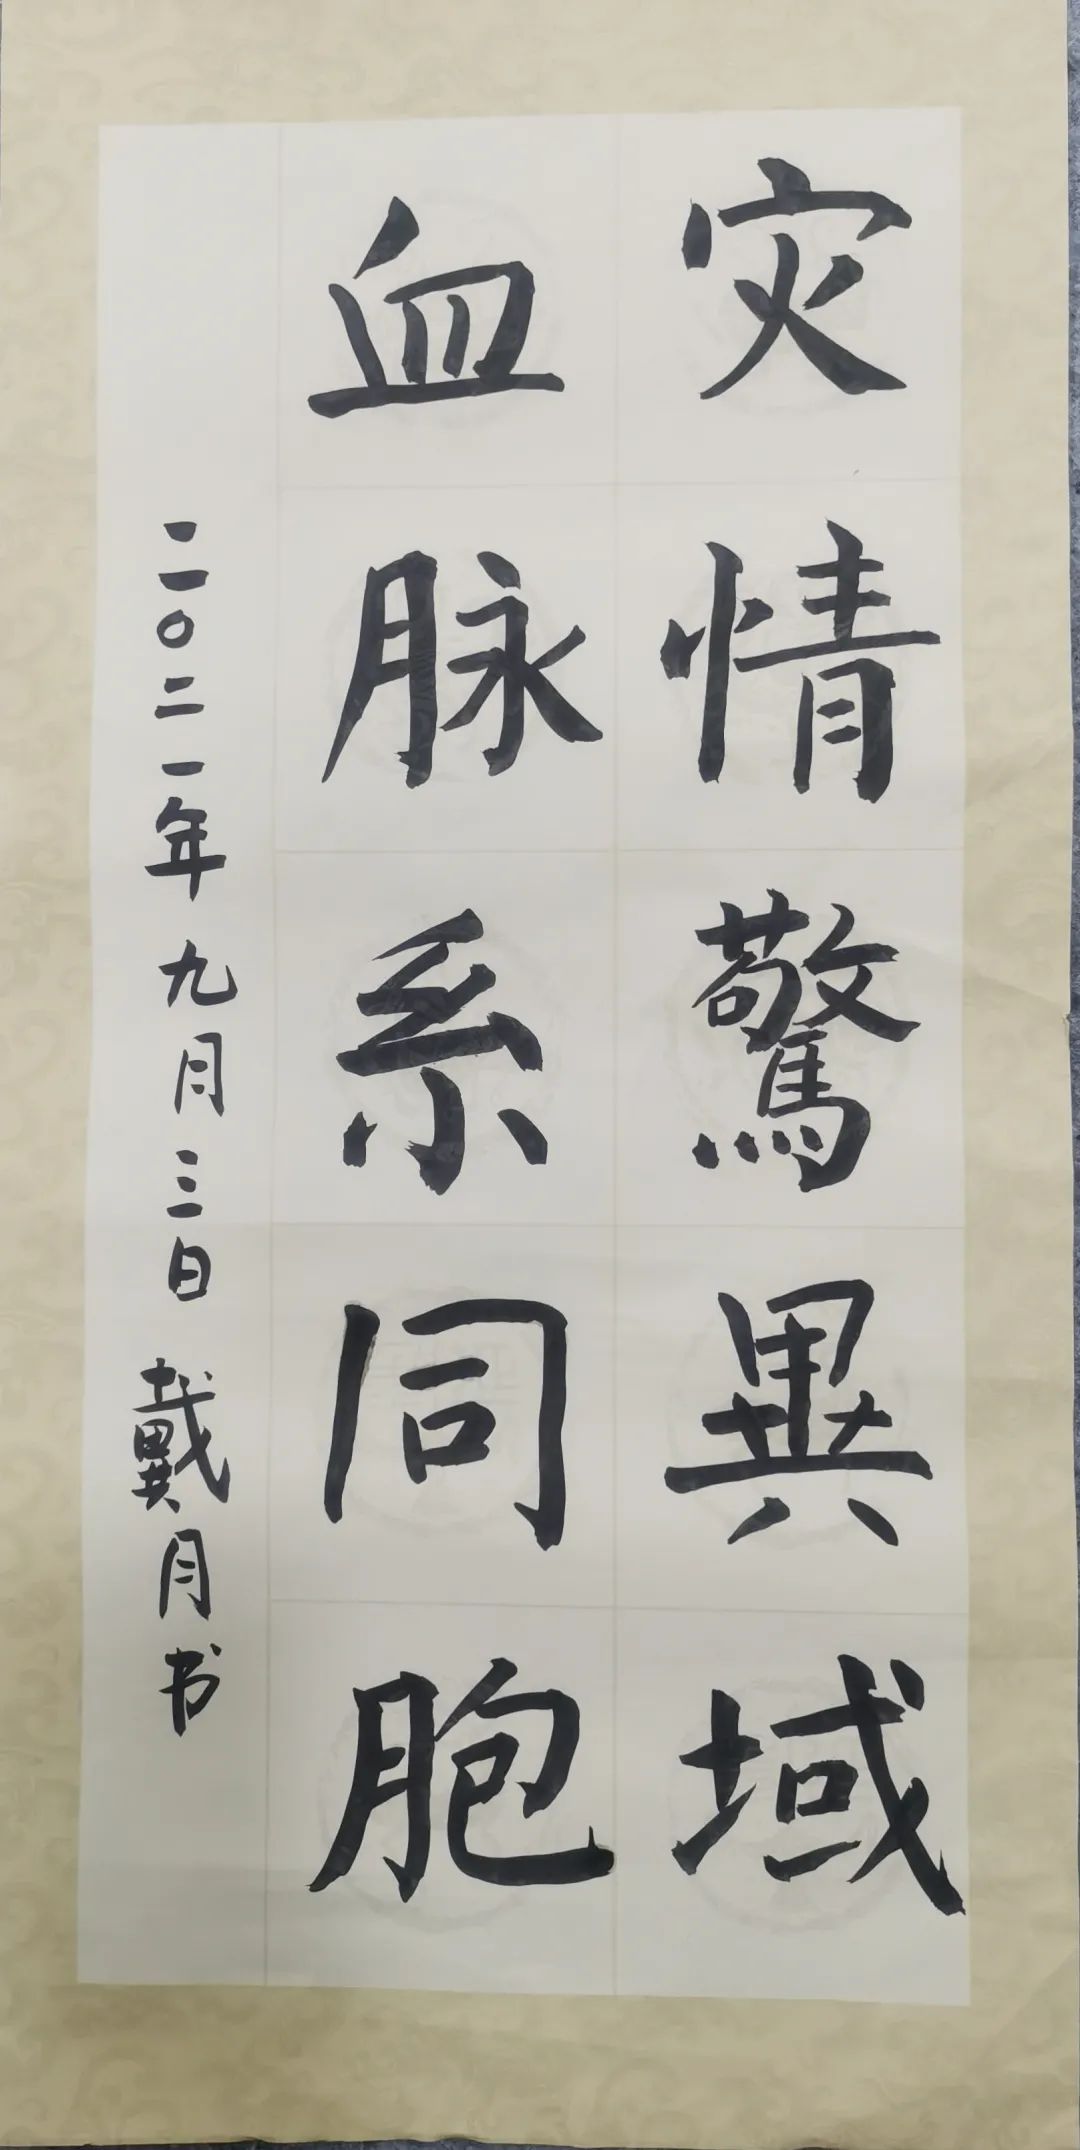 灾情驚異域
血脉系同胞
二〇二一年九月三日戴月书